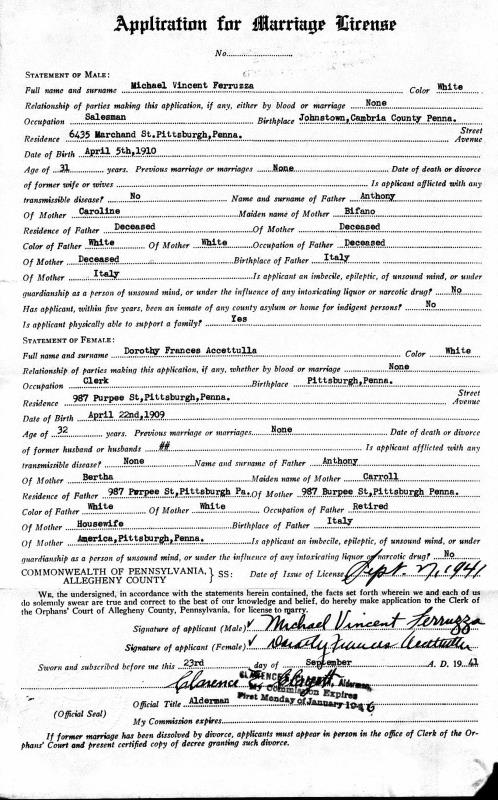 Application for Marriage License
No.
STATEMENT OF MALE:
Full name and surname Michael Vincent Ferruzza Color White
Relationship of parties making this application, if any, either by blood or marriage None
Occupation Salesman Birthplace Johnstown,Cambria County Penna.
Residence 6435 Marchand St.Pittsburgh,Penna. Street Avenue
Date of Birth April 5th,1910
Age of 31 years. Previous marriage or marriages None Date of death or divorce
of former wife or wives Is applicant afflicted with any
transmissible disease? No Name and surname of Father Anthony
Of Mother Caroline Maiden name of Mother Bifano
Residence of Father Deceased Of Mother Deceased
Color of Father White Of Mother White Occupation of Father Deceased
Of Mother Deceased Birthplace of Father Italy
Of Mother Italy Is applicant an imbecile, epileptic, of unsound mind, or under
guardianship as a person of unsound mind, or under the influence of any intoxicating liquor or narcotic drug? No
Has applicant, within five years, been an inmate of any county asylum or home for indigent persons? No
Is applicant physically able to support a family? Yes
STATEMENT OF FEMALE:
Full name and surname Dorothy Frances Accettulla Color White
Relationship of parties making this application, if any, whether by blood or marriage None
Occupation Clerk Birthplace Pittsburgh,Penna.
Residence 987 Purpee St,Pittsburgh,Penna. Street Avenue
Date of Birth April 22nd,1909
Age of 32 years. Previous marriage or marriages None Date of death or divorce
of former husband or husbands ## Is applicant afflicted with any
transmissible disease? None Name and surname of Father Anthony
Of Mother Bertha Maiden name of Mother Carroll
Residence of Father 987 Purpee St,Pittsburgh Pa. Of Mother 987 Burpee St,Pittsburgh Penna.
Color of Father White Of Mother White Occupation of Father Retired
Of Mother Housewife Birthplace of Father Italy
Of Mother America,Pittsburgh,Penna. Is applicant an imbecile, epileptic, of unsound mind, or under
guardianship as a person of unsound mind, or under the influence of any intoxicating liquor or narcotic drug? No
COMMONWEALTH OF PENNSYLVANIA, ALLEGHENY COUNTY } SS: Date of Issue of License Sept. 27, 1941
WE, the undersigned, in accordance with the statements herein contained, the facts set forth wherein we and each of us
do solemnly swear are true and correct to the best of our knowledge and belief, do hereby make application to the Clerk of
the Orphans' Court of Allegheny County, Pennsylvania, for license to marry.
Signature of applicant (Male) Michael Vincent Ferruzza
Signature of applicant (Female) Dorothy Frances Accettulla
Sworn and subscribed before me this 23rd day of September A. D. 19 41
Clarence
CLARENCE Alderman,
My Commission Expires
First Monday of January 1946
Official Title Alderman
(Official Seal)
My Commission expires
If former marriage has been dissolved by divorce, applicants must appear in person in the office of Clerk of the Or-
phans' Court and present certified copy of decree granting such divorce.